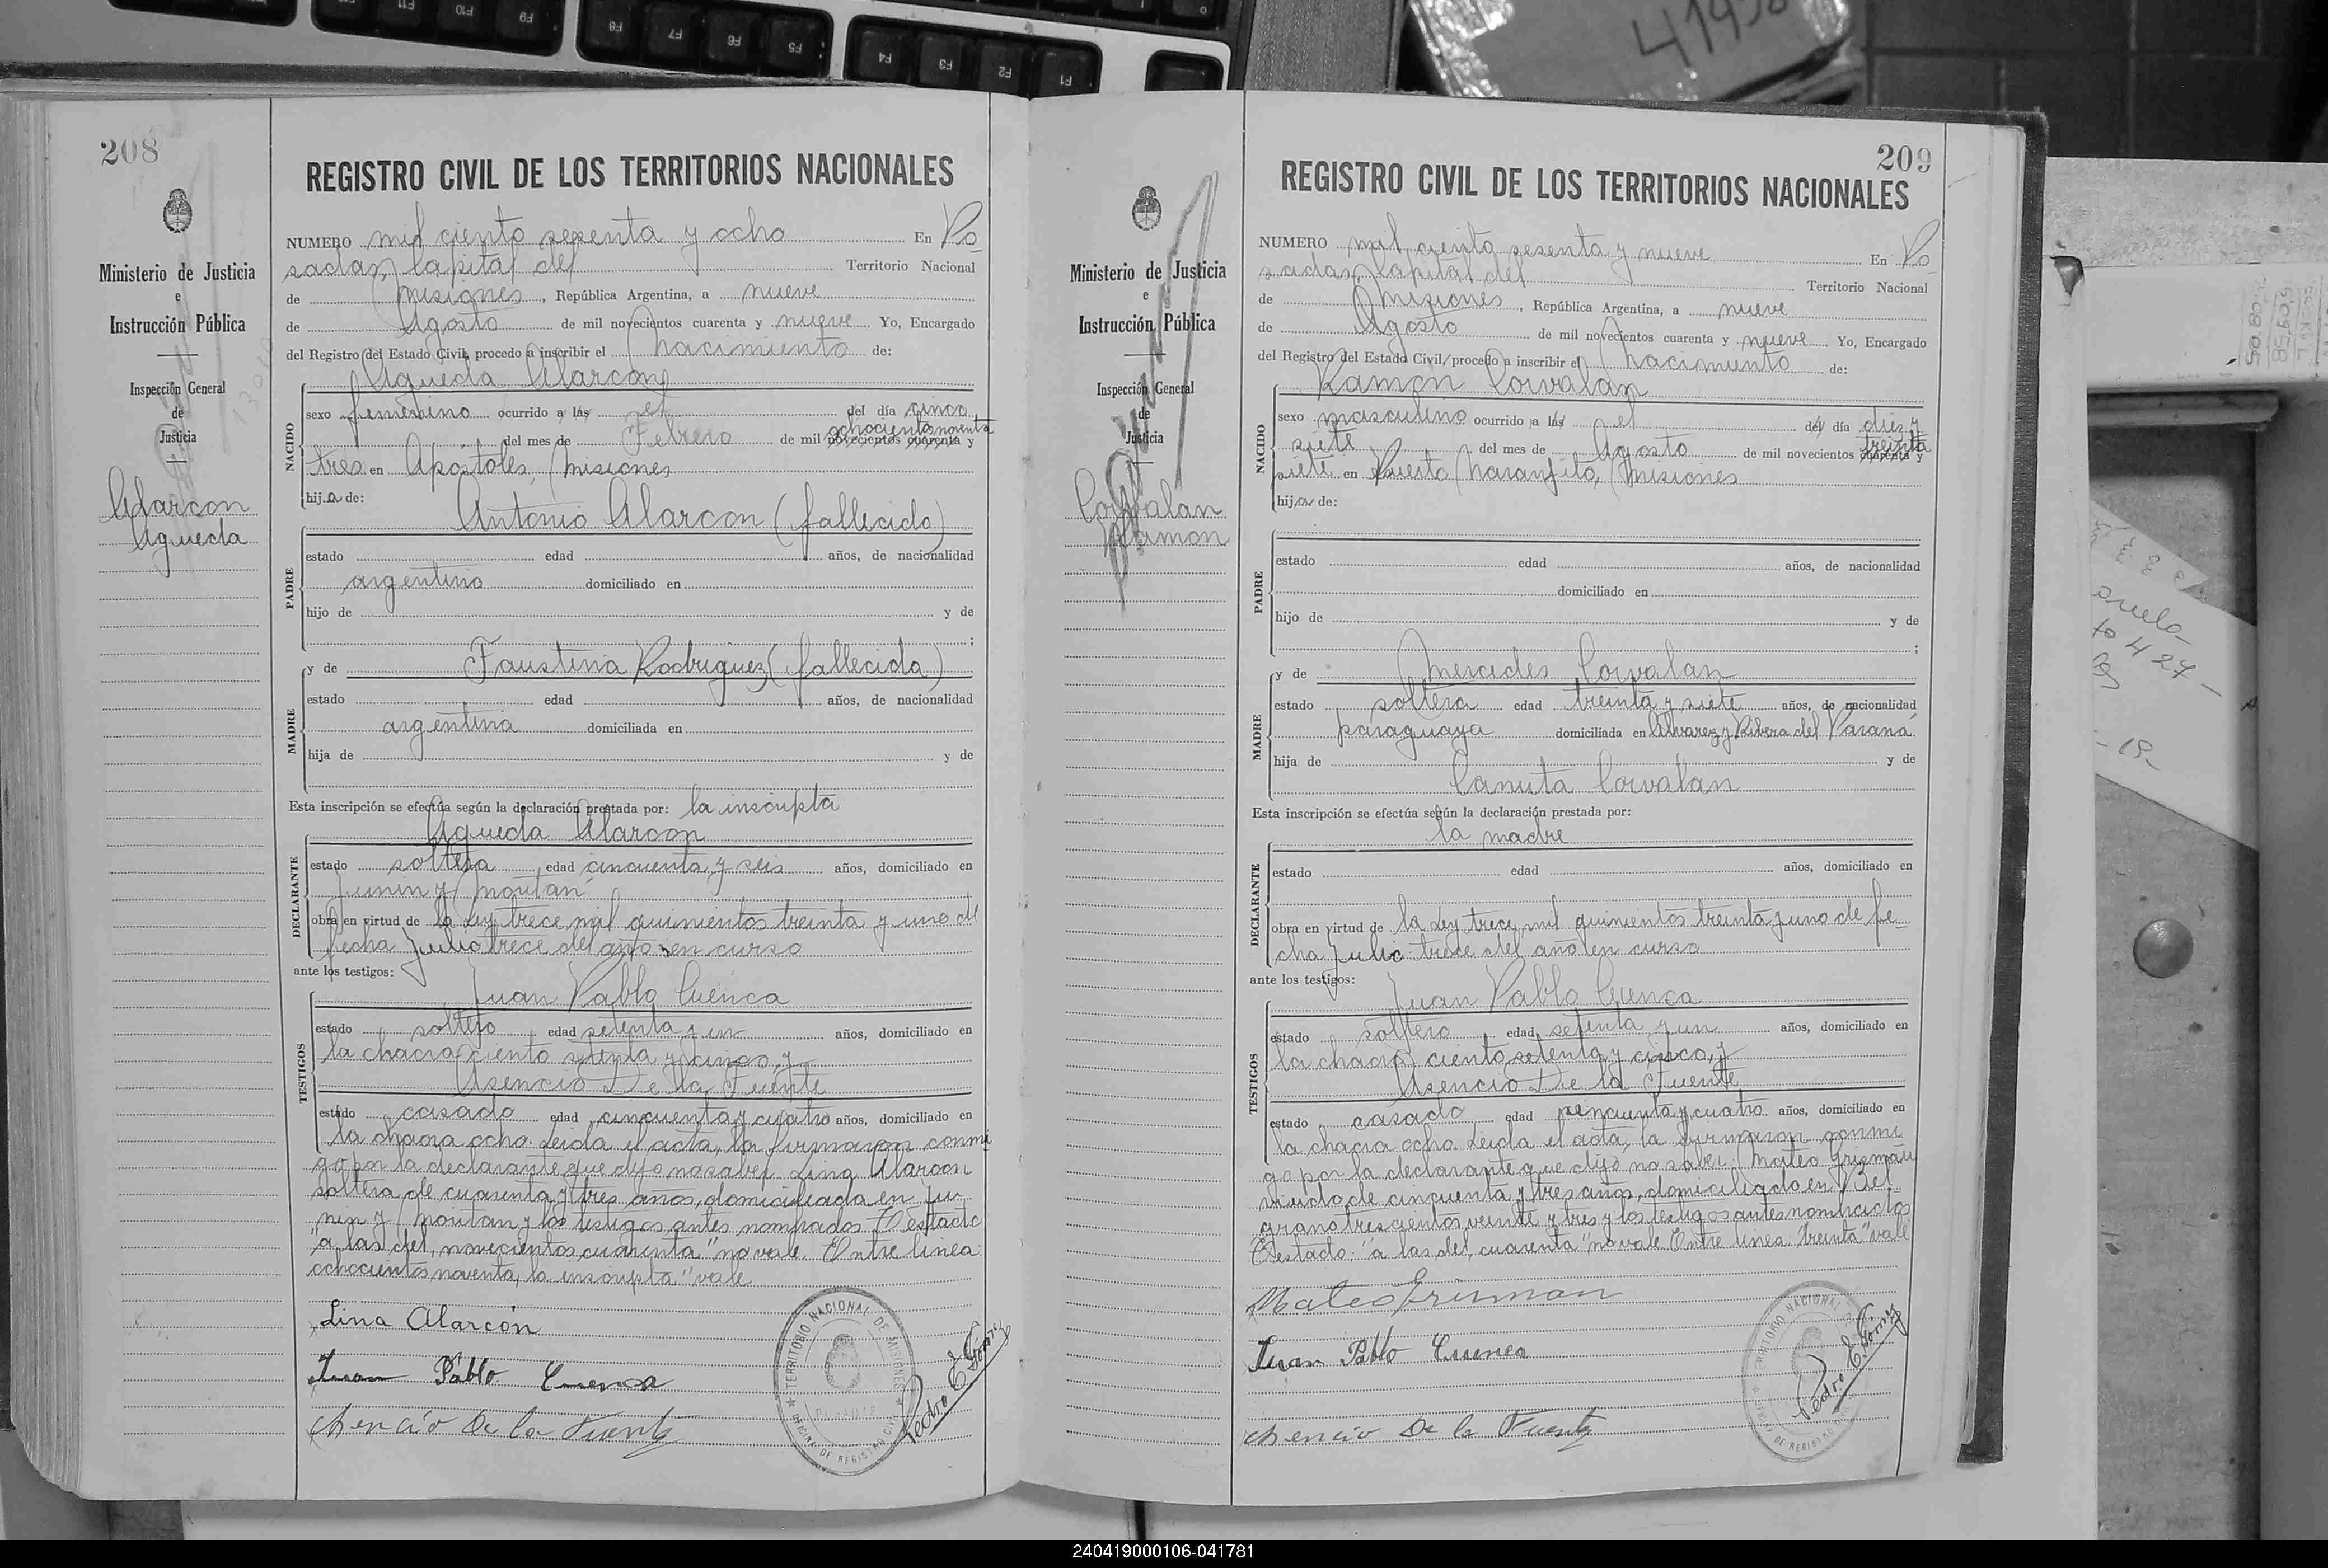 208
REGISTRO CIVIL DE LOS TERRITORIOS NACIONALES
Ministerio de Justicia
e
Instrucción Pública
Inspección General
de
Justicia
Alarcon
Agueda
NUMERO mil ciento sesenta y ocho En Po-
sadas, Capital del Territorio Nacional
de Misiones, República Argentina, a nueve
de Agosto de mil novecientos cuarenta y nueve Yo, Encargado
del Registro del Estado Civil, procedo a inscribir el nacimiento de:
Agueda Alarcon
NACIDO
sexo femenino ocurrido a las el del día cinco
ochocientos noventa
del mes de Febrero de mil novecientos cuarenta y
tres en Apostoles, Misiones
hija de:
Antonio Alarcon (fallecido)
PADRE
estado edad años, de nacionalidad
argentino domiciliado en
hijo de y de
;
y de Faustina Rodriguez (fallecida)
MADRE
estado edad años, de nacionalidad
argentina domiciliada en
hija de y de
Esta inscripción se efectúa según la declaración prestada por: la inscripta
Agueda Alarcon
DECLARANTE
estado soltera edad cincuenta y seis años, domiciliado en
Junin y Moritan
obra en virtud de la Ley trece mil quinientos treinta y uno de
fecha Julio trece del año en curso
ante los testigos:
Juan Pablo Cuenca
TESTIGOS
estado soltero edad setenta y un años, domiciliado en
la chacra ciento setenta y cinco, y
Asencio De la Fuente
estado casado edad cincuenta y cuatro años, domiciliado en
la chacra ocho. Leida el acta, la firmaron conmi
go por la declarante que dijo no saber Lina Alarcon
soltera de cuarenta y tres años, domiciliada en Ju-
nin y Moritan y los testigos antes nombrados. Testado
"a las, del, novecientos cuarenta" no vale. Entre linea
ochocientos noventa, la inscripta" vale
Lina Alarcón
Juan Pablo Cuenca
Asencio De la Fuente
TERRITORIO NACIONAL DE MISIONES
OFICINA DE REGISTRO CIVIL
POSADAS
Pedro E. Gómez
209
REGISTRO CIVIL DE LOS TERRITORIOS NACIONALES
Ministerio de Justicia
e
Instrucción Pública
Inspección General
de
Justicia
Corvalan
Ramon
NUMERO mil ciento sesenta y nueve En Po-
sadas, Capital del Territorio Nacional
de Misiones, República Argentina, a nueve
de Agosto de mil novecientos cuarenta y nueve Yo, Encargado
del Registro del Estado Civil, procedo a inscribir el nacimiento de:
Ramon Corvalan
NACIDO
sexo masculino ocurrido a las el del día diez y
siete del mes de Agosto de mil novecientos cuarenta y
treinta
siete en Puerto Naranjito, Misiones
hijo de:
PADRE
estado edad años, de nacionalidad
domiciliado en
hijo de y de
;
y de Mercedes Corvalan
MADRE
estado soltera edad treinta y siete años, de nacionalidad
paraguaya domiciliada en Alvarez y Ribera del Paraná
hija de y de
Canuta Corvalan
Esta inscripción se efectúa según la declaración prestada por:
la madre
DECLARANTE
estado edad años, domiciliado en
obra en virtud de la Ley trece mil quinientos treinta y uno de fe-
cha Julio trece del año en curso
ante los testigos:
Juan Pablo Cuenca
TESTIGOS
estado soltero edad setenta y un años, domiciliado en
la chacra ciento setenta y cinco, y
Asencio De la Fuente
estado casado edad cincuenta y cuatro años, domiciliado en
la chacra ocho. Leida el acta, la firmaron conmi
go por la declarante que dijo no saber Mateo Grisman
viudo, de cincuenta y tres años, domiciliado en Bel
grano trescientos veinte y tres y los testigos antes nombrados
Testado: "a las, del, cuarenta" no vale. Entre linea: treinta" vale
Mateo Grisman
Juan Pablo Cuenca
Asencio De la Fuente
TERRITORIO NACIONAL
DE REGISTRO
Pedro E. Gómez
240419000106-041781